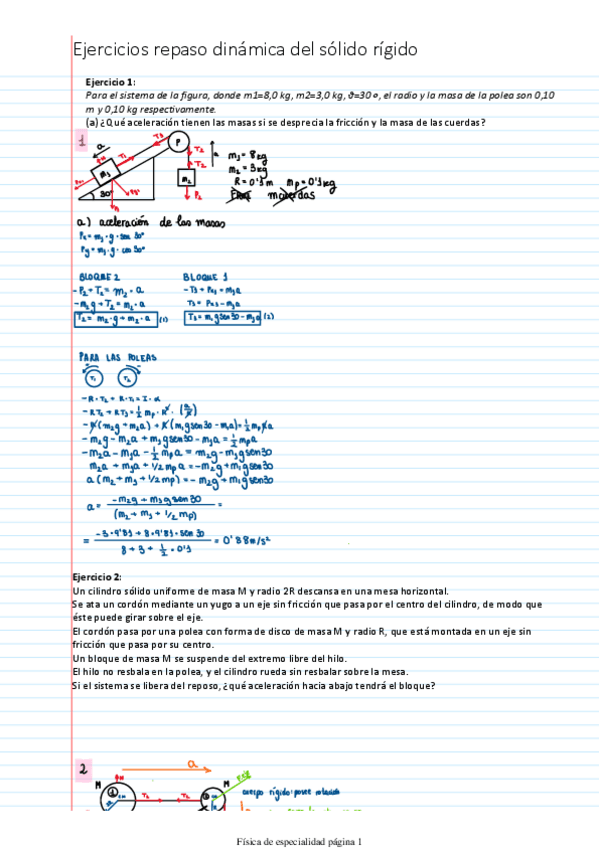 Ejercicios repaso dinámica del sólido rígido
Ejercicio 1:
Para el sistema de la figura, donde m1=8,0 kg, m2=3,0 kg, ϑ=30∘, el radio y la masa de la polea son 0,10
m y 0,10 kg respectivamente.
(a) ¿Qué aceleración tienen las masas si se desprecia la fricción y la masa de las cuerdas?
1
a
T1
P
T2
T2
m1
m2
30°
P2
m1 = 8kg
m2 = 3kg
R = 0'1m mp = 0'1kg
mcuerdas
a) aceleración de las masas
Px = m1 · g · sen 30°
Py = m1 · g · cos 30°
BLOQUE 2 BLOQUE 1
-P2 + T2 = m2 · a -T1 + Px1 = m1a
-m2g + T2 = m2 · a T1 = Px1 - m1a
T2 = m2 · g + m2 · a (1) T1 = m1gsen30 - m1a (2)
PARA LAS POLEAS
T1 T2
-R · T2 + R · T1 = I · α
-RT2 + RT1 = 1/2 mp · R² · (a/R)
-R(m2g + m2a) + R(m1gsen30 - m1a) = 1/2 mpRa
-m2g - m2a + m1gsen30 - m1a = 1/2 mpa
-m2a - m1a - 1/2 mpa = m2g - m1gsen30
m2a + m1a + 1/2 mpa = -m2g + m1gsen30
a(m2 + m1 + 1/2 mp) = -m2g + m1gsen30
a = -m2g + m1gsen30 / (m2 + m1 + 1/2 mp) =
= -3·9'81 + 8·9'81·sen30 / 8 + 3 + 1/2 · 0'1 = 0'88m/s²
Ejercicio 2:
Un cilindro sólido uniforme de masa M y radio 2R descansa en una mesa horizontal.
Se ata un cordón mediante un yugo a un eje sin fricción que pasa por el centro del cilindro, de modo que
éste puede girar sobre el eje.
El cordón pasa por una polea con forma de disco de masa M y radio R, que está montada en un eje sin
fricción que pasa por su centro.
Un bloque de masa M se suspende del extremo libre del hilo.
El hilo no resbala en la polea, y el cilindro rueda sin resbalar sobre la mesa.
Si el sistema se libera del reposo, ¿qué aceleración hacia abajo tendrá el bloque?
2
a
M
M
cuerpo rígido: posee rotación
Física de especialidad página 1